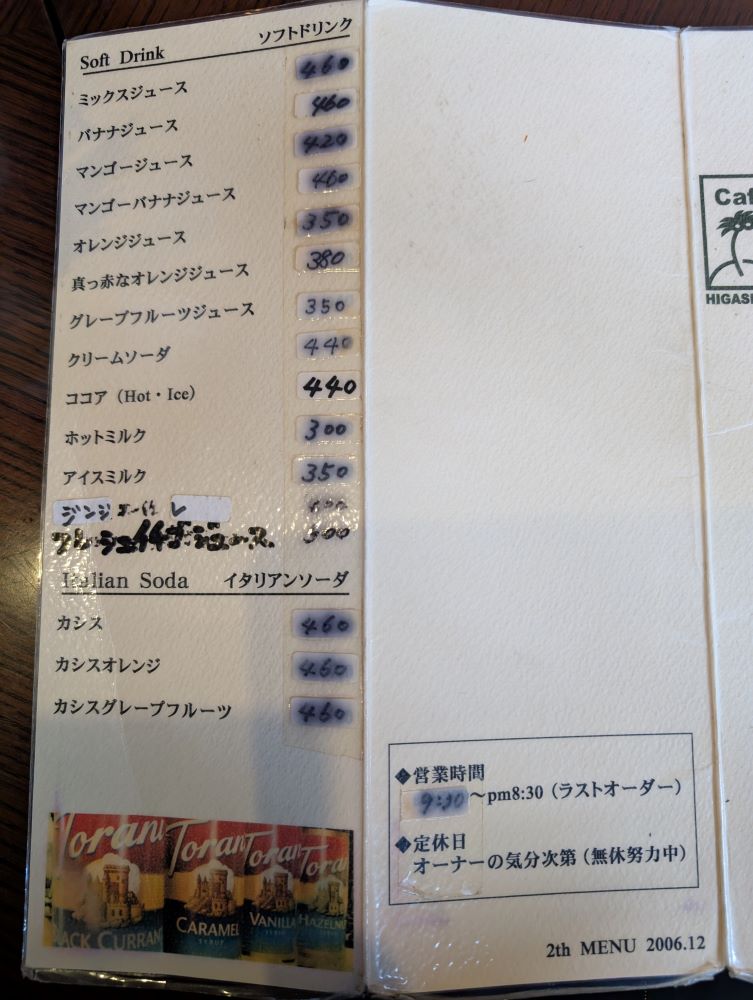 Soft Drink ソフトドリンク
ミックスジュース 460
バナナジュース 460
マンゴージュース 420
マンゴーバナナジュース 460
オレンジジュース 350
真っ赤なオレンジジュース 380
グレープフルーツジュース 350
クリームソーダ 440
ココア（Hot・Ice） 440
ホットミルク 300
アイスミルク 350
ジンジ
フレーシュイチゴジュース. 500
Italian Soda イタリアンソーダ
カシス 460
カシスオレンジ 460
カシスグレープフルーツ 460
Torani Torani Torani Torani
BLACK CURRANT CARAMEL VANILLA HAZELNUT
SYRUP SYRUP
◆営業時間
9:30～pm8:30（ラストオーダー）
◆定休日
オーナーの気分次第（無休努力中）
2th MENU 2006.12
Caf
HIGASH